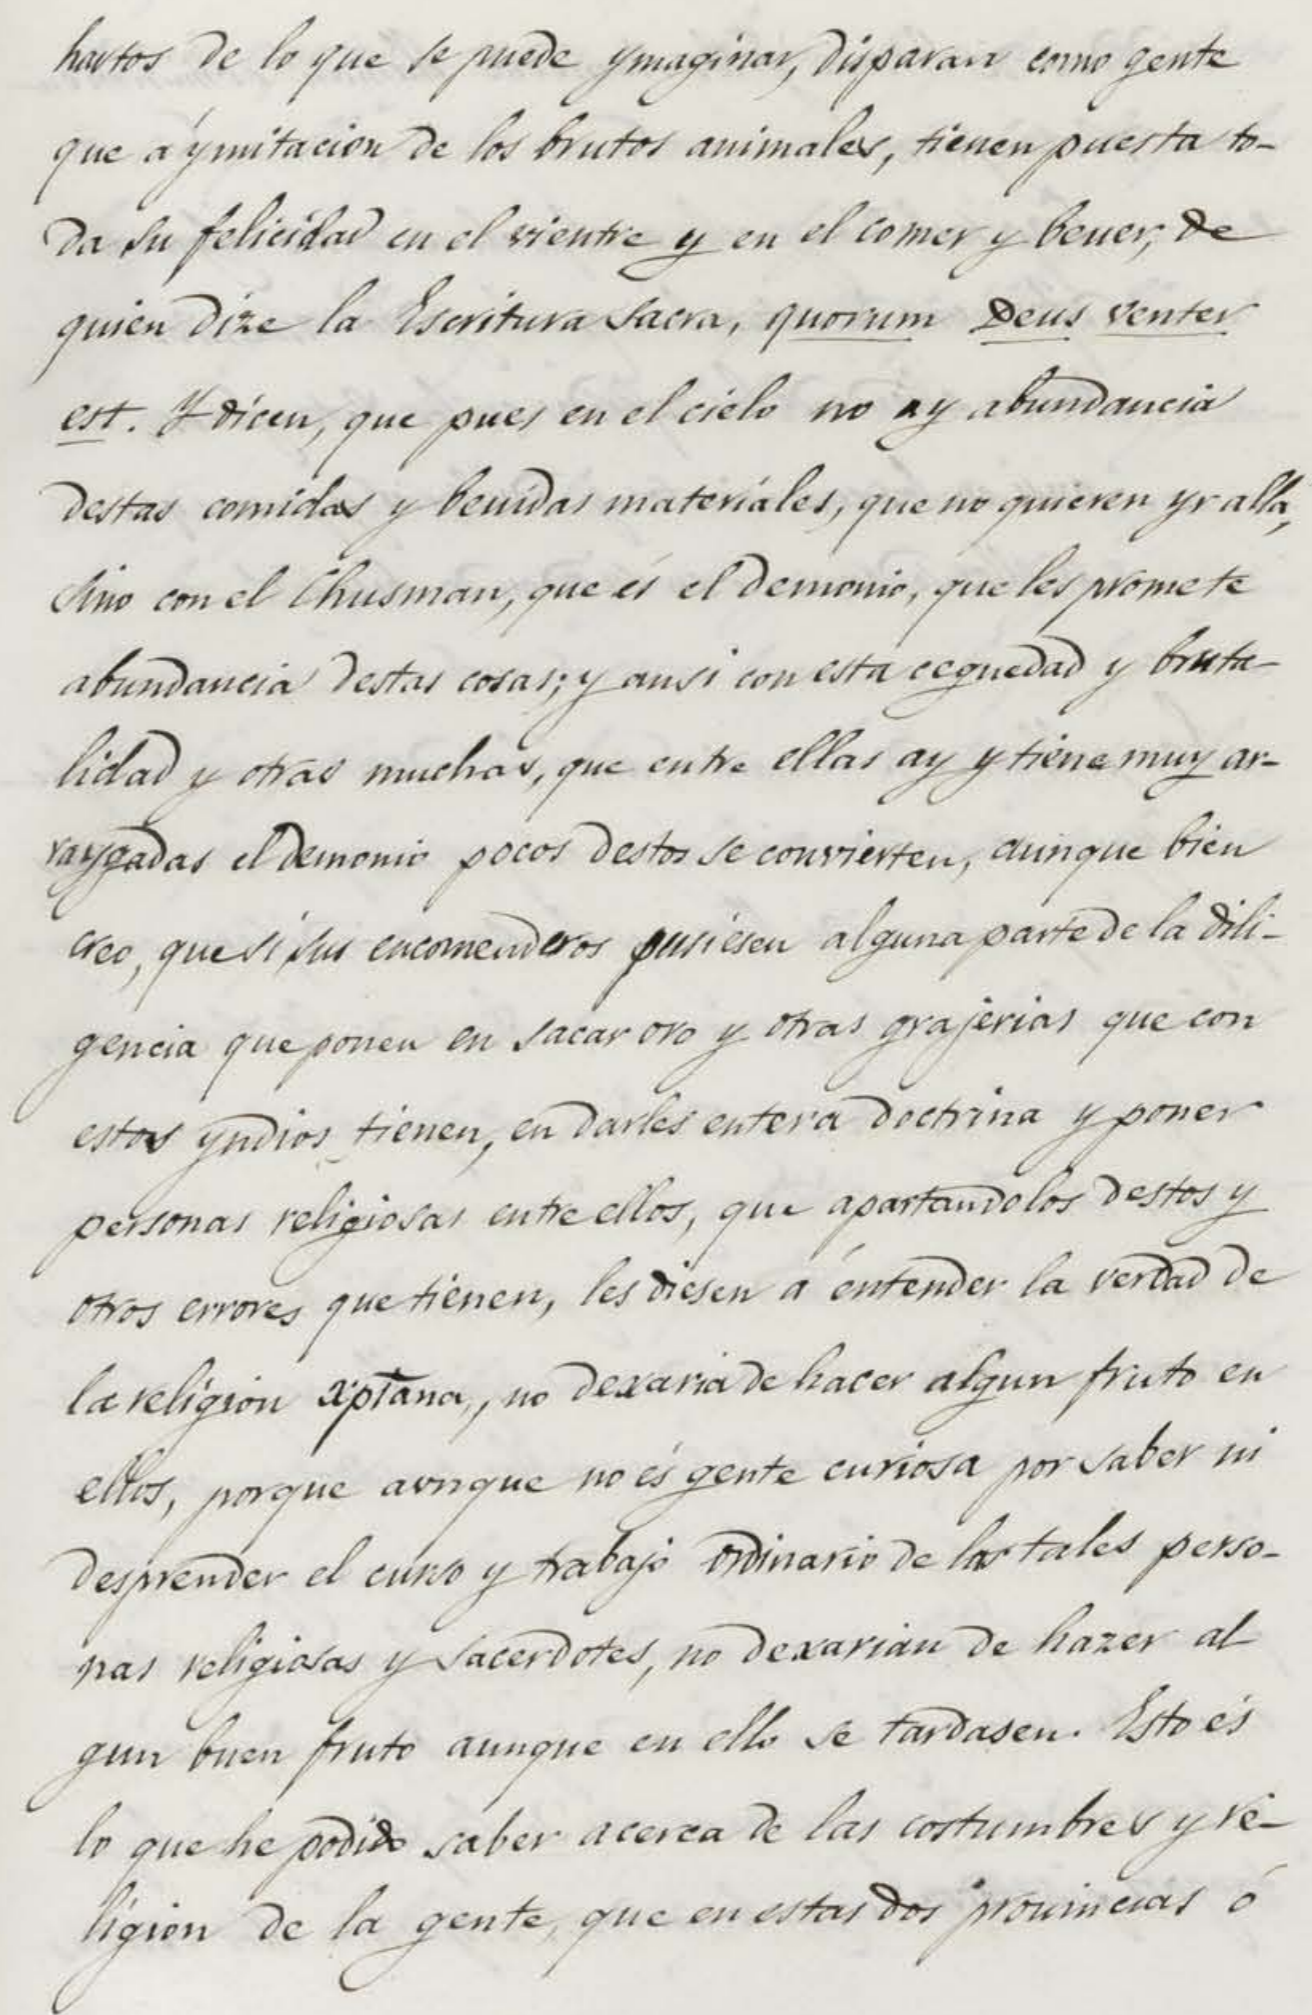 hartos de lo que se puede ymaginar, disparan como gente
que á ymitacion de los brutos animales, tienen puesta to-
da su felicidad en el vientre y en el comer y beuer, de
quien dize la Escritura sacra, quorum Deus venter
est. Y dicen, que pues en el cielo no ay abundancia
destas comidas y beuidas materiales, que no quieren yr allá,
sino con el Chusman, que és el demonio, que les promete
abundancia destas cosas; y ansi con esta ceguedad y bruta-
lidad y otras muchas, que entre ellas ay y tiene muy ar-
raygadas el demonio pocos destos se convierten, aunque bien
creo, que si sus encomenderos pusiesen alguna parte de la dili-
gencia que ponen en sacar oro y otras grajerias que con
estos yndios tienen, en darles entera doctrina y poner
personas religiosas entre ellos, que apartandolos destos y
otros errores que tienen, les diesen á entender la verdad de
la religion xptana, no dexaria de hacer algun fruto en
ellos, porque avnque no és gente curiosa por saber ni
desprender el curso y trabajo ordinario de las tales perso-
nas religiosas y sacerdotes, no dexarian de hazer al
gun buen fruto aunque en ello se tardasen. Esto és
lo que he podido saber acerca de las costumbres y re-
ligion de la gente, que en estas dos prouincias ó